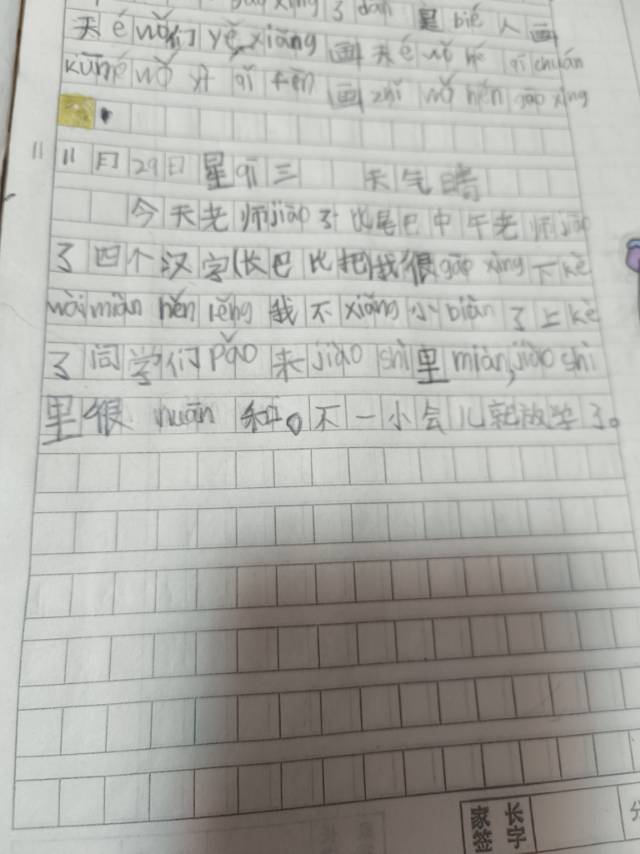 xing 了 dàn 是 bié 人 画
天 é wǒ们 yě xiǎng 画 天 é wǒ hé qī chuán
kūn é wǒ 气 fēn 画 zhǐ wǒ hěn gāo xìng
11月29日 星qī三 天气晴
今天老师jiāo了比尾巴中午老师jiāo
了四个汉字(长巴比把)我很gāo xìng下kè
wài miàn hěn lěng 我不xiǎng小biàn了上kè
了同学们pǎo来jiào shì里miàn,jiào shì
里很nuǎn和。不一小会儿就放学了。
家长
签字